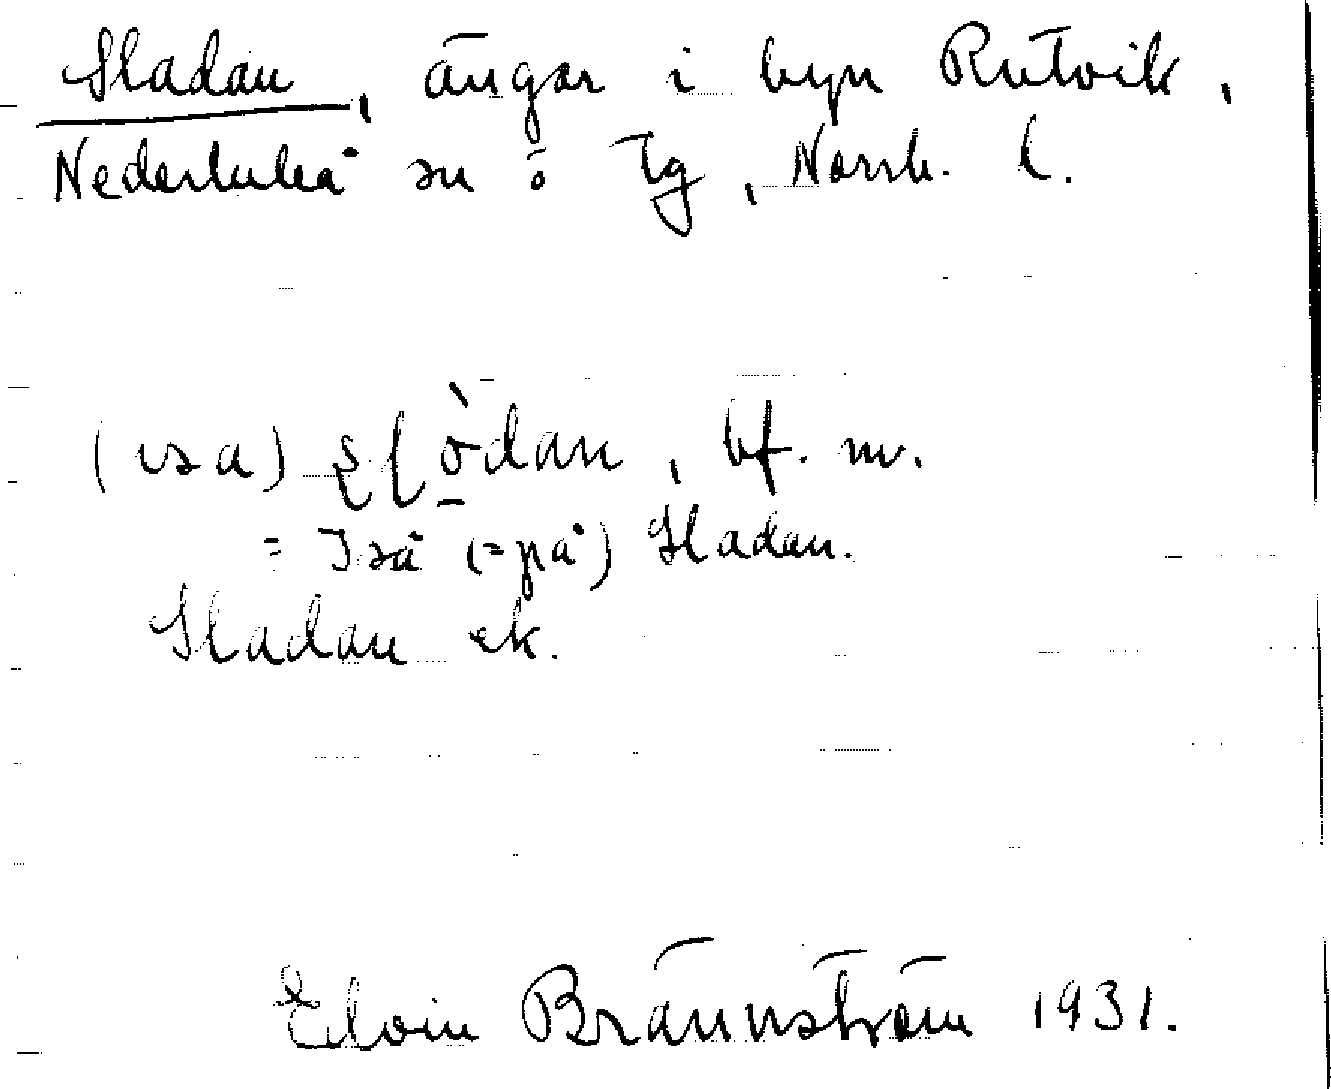 Sladan, ängar i byn Rutvik,
Nederluleå sn ö Tg, Norrb. l.
(ɩsa) ʂɭò̱dan, bf. m.
= Iså (=på) Sladan.
Sladan ek.
Edvin Brännström 1931.